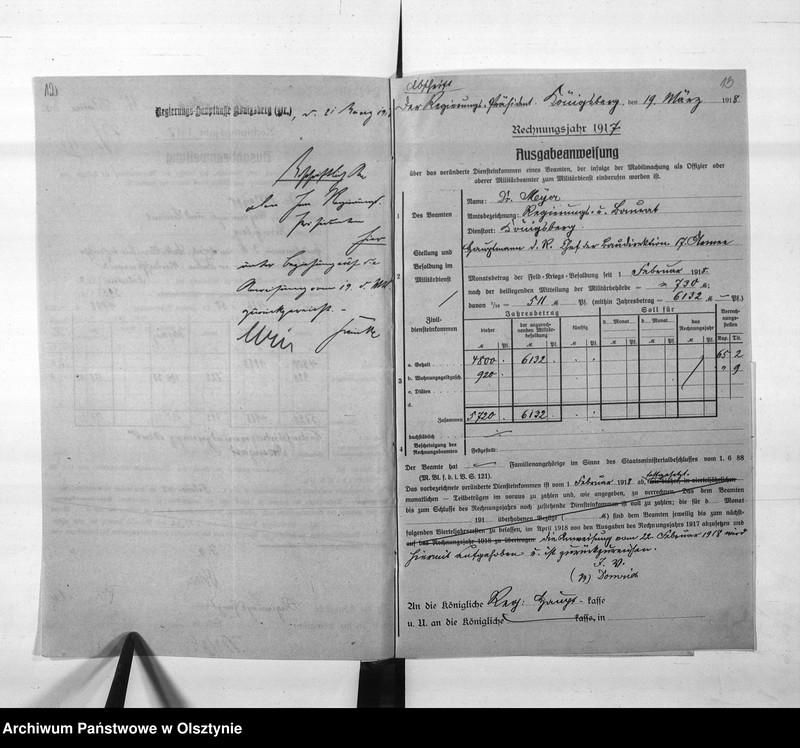 12
Regierungs-Hauptkasse Königsberg (Pr.), d. 21 März 191
Urschriftlich
dem Herrn Regierungs-
Präsidenten
hier
unter Bezugnahme auf die
Anweisung vom 19. d. Mts.
zurückgereicht. –
Abschrift
13
Der Regierungs-Präsident. Königsberg, den 19. März 1918.
Rechnungsjahr 1917
Ausgabeanweisung
über das veränderte Diensteinkommen eines Beamten, der infolge der Mobilmachung als Offizier oder
oberer Militärbeamter zum Militärdienst einberufen worden ist.
1 Des Beamten
Name: Dr. Meyer
Amtsbezeichnung: Regierungs- u. Baurat
Dienstort: Königsberg
2 Stellung und Besoldung im Militärdienst
Hauptmann d. R. Chef der Baudirektion 17. Armee
Monatsbetrag der Feld-Kriegs-Besoldung seit 1 Februar 1918.
nach der beiliegenden Mitteilung der Militärbehörde – 730 ℳ;
davon 7/10 – 511 ℳ – Pf. (mithin Jahresbetrag – 6132 ℳ – Pf.)
3 Zivildiensteinkommen
Jahresbetrag
Soll für
Verrechnungsstellen
bisher
der anzurechnenden Militärbesoldung
künftig
d. Monat
d. Monat
das Rechnungsjahr
Kap. Tit.
ℳ Pf. ℳ Pf. ℳ Pf. ℳ Pf. ℳ Pf. ℳ Pf.
a. Gehalt 4800 . 6132 . . . 65 2
b. Wohnungsgeldzusch. 920 . " 9
c. Diäten
d.
Zusammen 5720 . 6132 . . .
buchstäblich
4 Bescheinigung des Rechnungsbeamten
Festgestellt:
Der Beamte hat – Familienangehörige im Sinne des Staatsministerialbeschlusses vom 1. 6 88
(M. Bl. f. d. i. V. S. 121).
Das vorbezeichnete veränderte Diensteinkommen ist vom 1 Februar 1918 ab,
monatlichen – Teilbeträgen im voraus zu zahlen und, wie angegeben, zu verrechnen. Das dem Beamten
bis zum Schlusse des Rechnungsjahres noch zustehende Diensteinkommen ist voll zu zahlen; die für d. Monat
191 überhobenen Bezüge ( ℳ) sind dem Beamten jeweilig bis zum nächst-
folgenden Vierteljahrsersten zu belassen, im April 1918 von den Ausgaben des Rechnungsjahres 1917 abzusetzen und
auf das Rechnungsjahr 1918 zu übertragen. Die Anweisung vom 22. Februar 1918 wird
hiermit aufgehoben u. ist zurückzureichen.
I. V.
An die Königliche Reg. Haupt-kasse
u. U. an die Königliche kasse, in
Archiwum Państwowe w Olsztynie